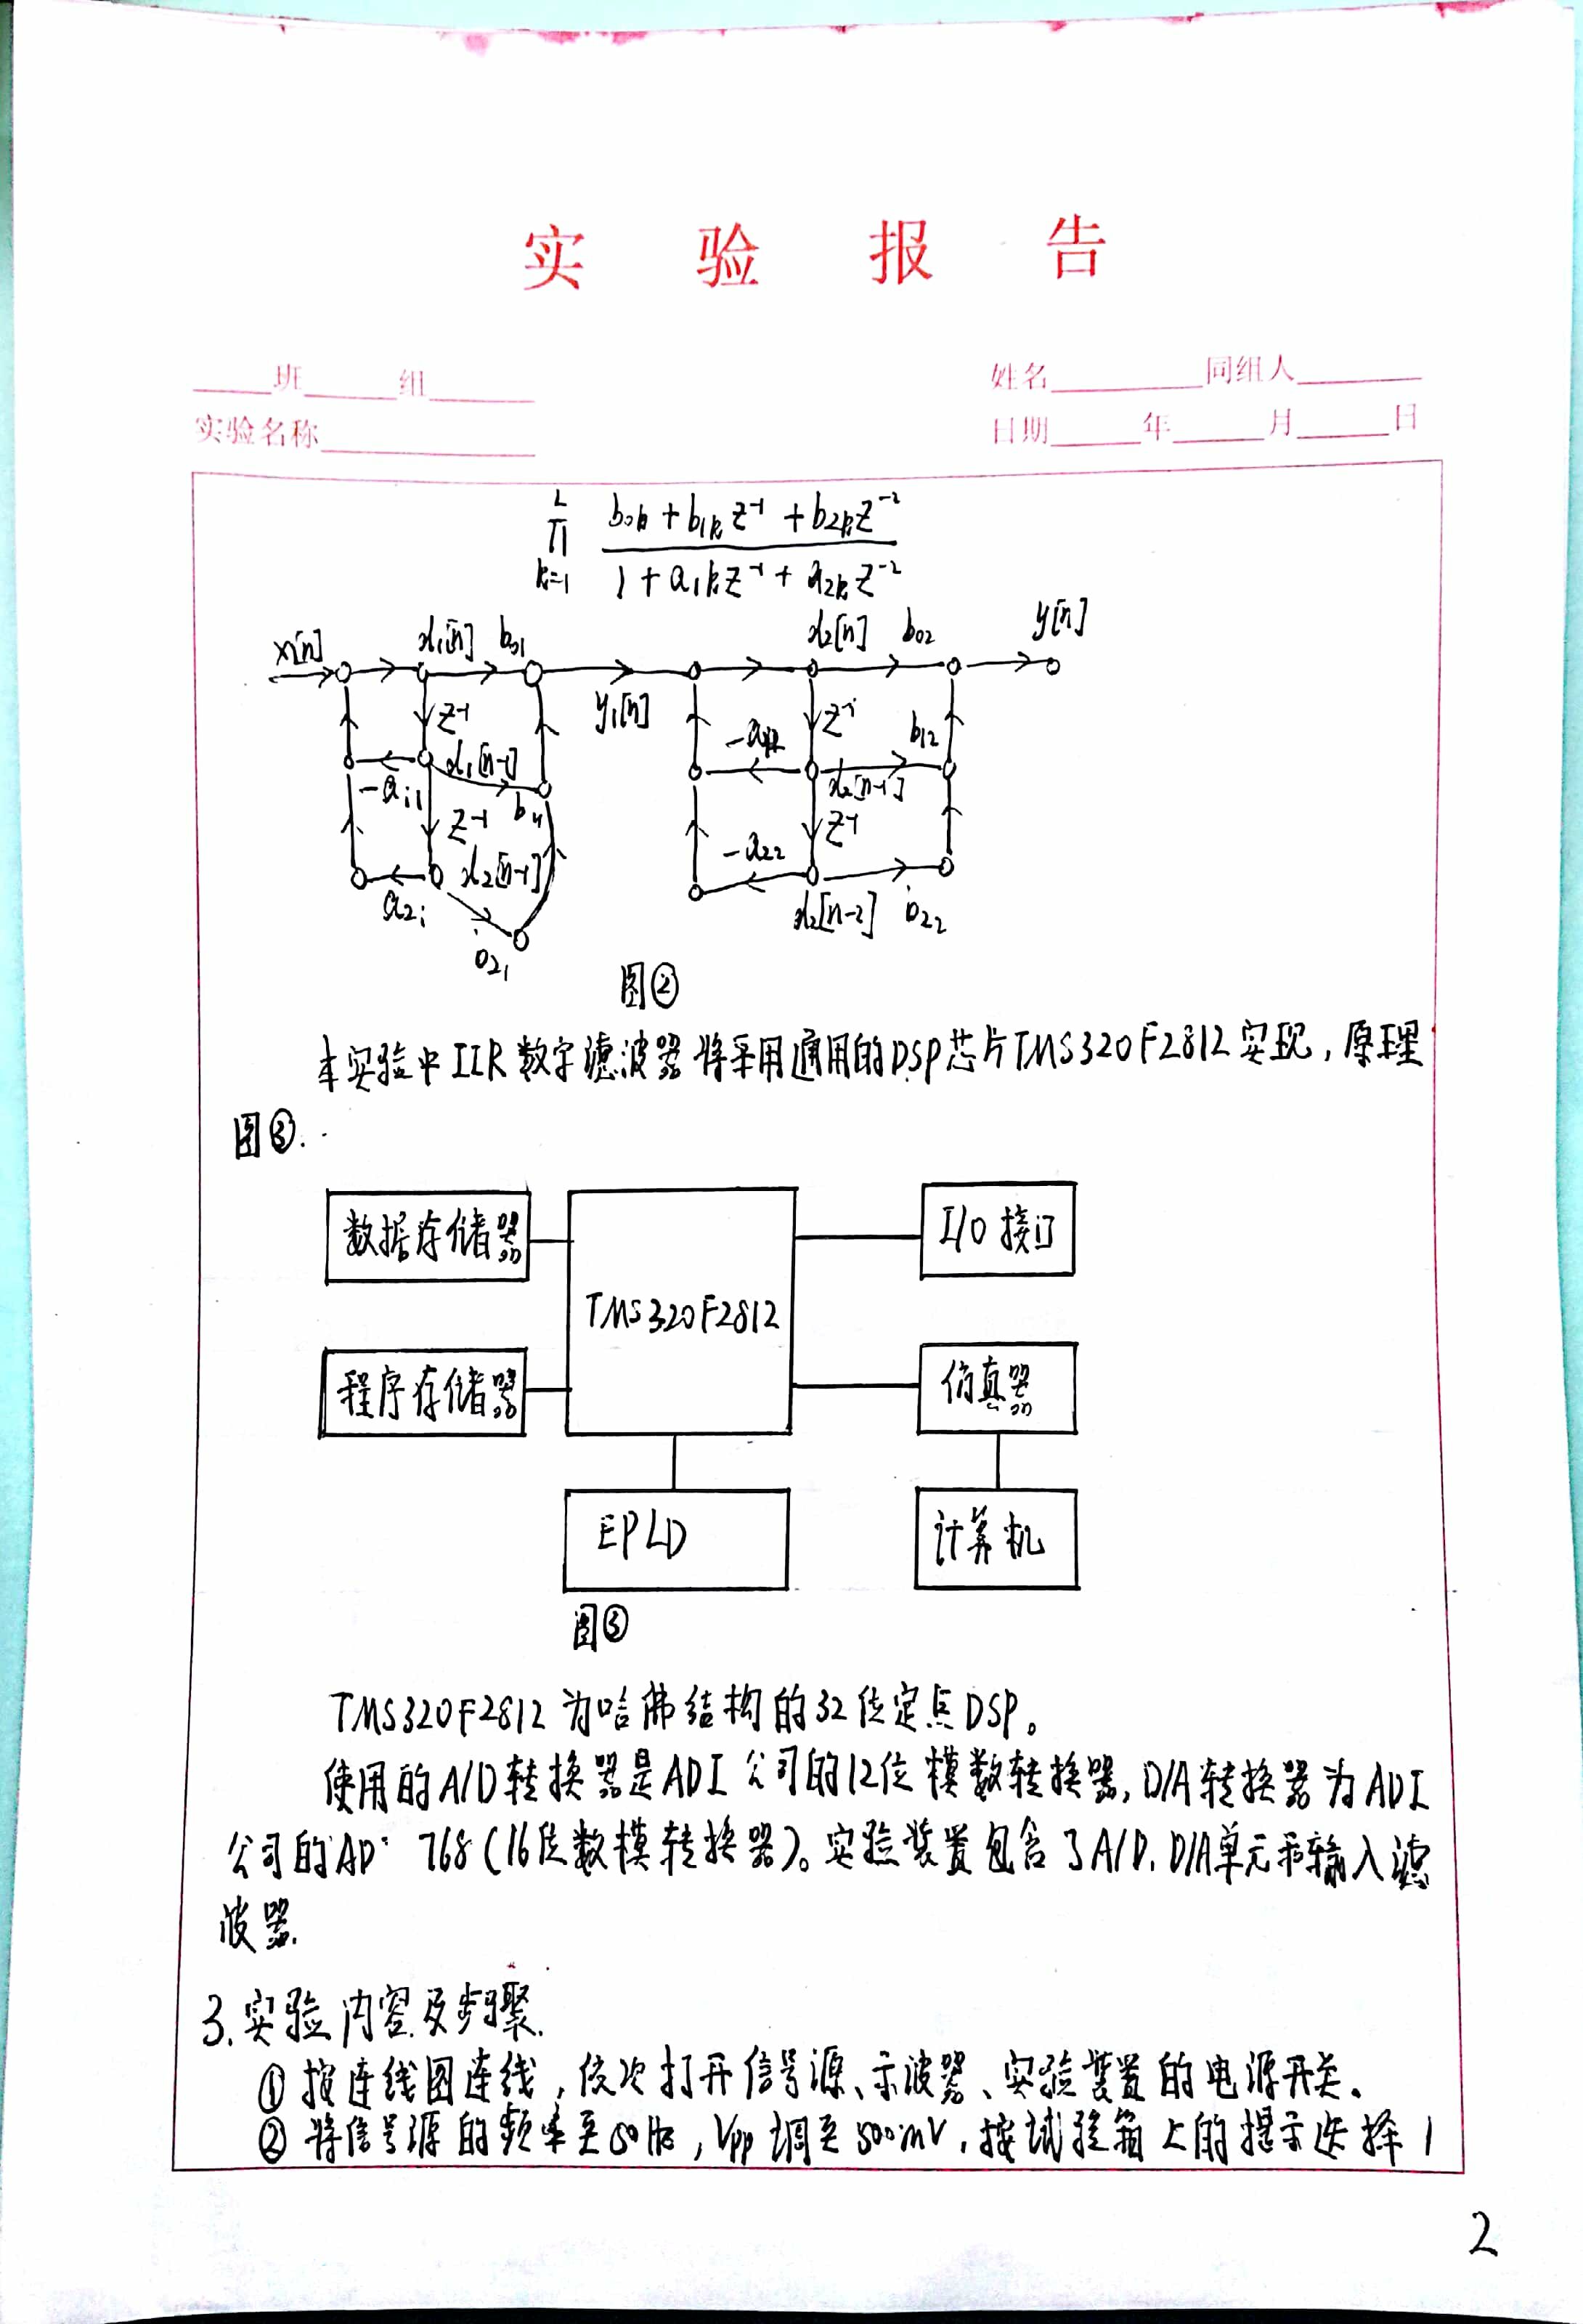 实 验 报 告
____班____组____ 姓名______同组人______
实验名称________ 日期____年____月____日
L
∏ (b0k + b1k z⁻¹ + b2k z⁻²) / (1 + a1k z⁻¹ + a2k z⁻²)
k=1
x[n] d1[n] b01 d2[n] b02 y[n]
z⁻¹ y1[n] z⁻¹
d1[n-1] b12
-a11 b11 d2[n-1]
z⁻¹ d2[n-1] -a22 z⁻¹
a2i d2[n-2] b22
b21
图②
本实验中IIR数字滤波器将采用通用的DSP芯片TMS320F2812实现,原理
图③.
数据存储器 I/O接口
TMS320F2812
程序存储器 仿真器
EPLD 计算机
图③
TMS320F2812为哈佛结构的32位定点DSP。
使用的A/D转换器是ADI公司的12位模数转换器,D/A转换器为ADI
公司的AD 768(16位数模转换器)。实验装置包含了A/D.D/A单元和输入滤
波器.
3.实验内容及步骤.
① 按连线图连线,依次打开信号源、示波器、实验装置的电源开关.
② 将信号源的频率至50Hz,Vpp调至500mV,按试验箱上的提示选择1
2